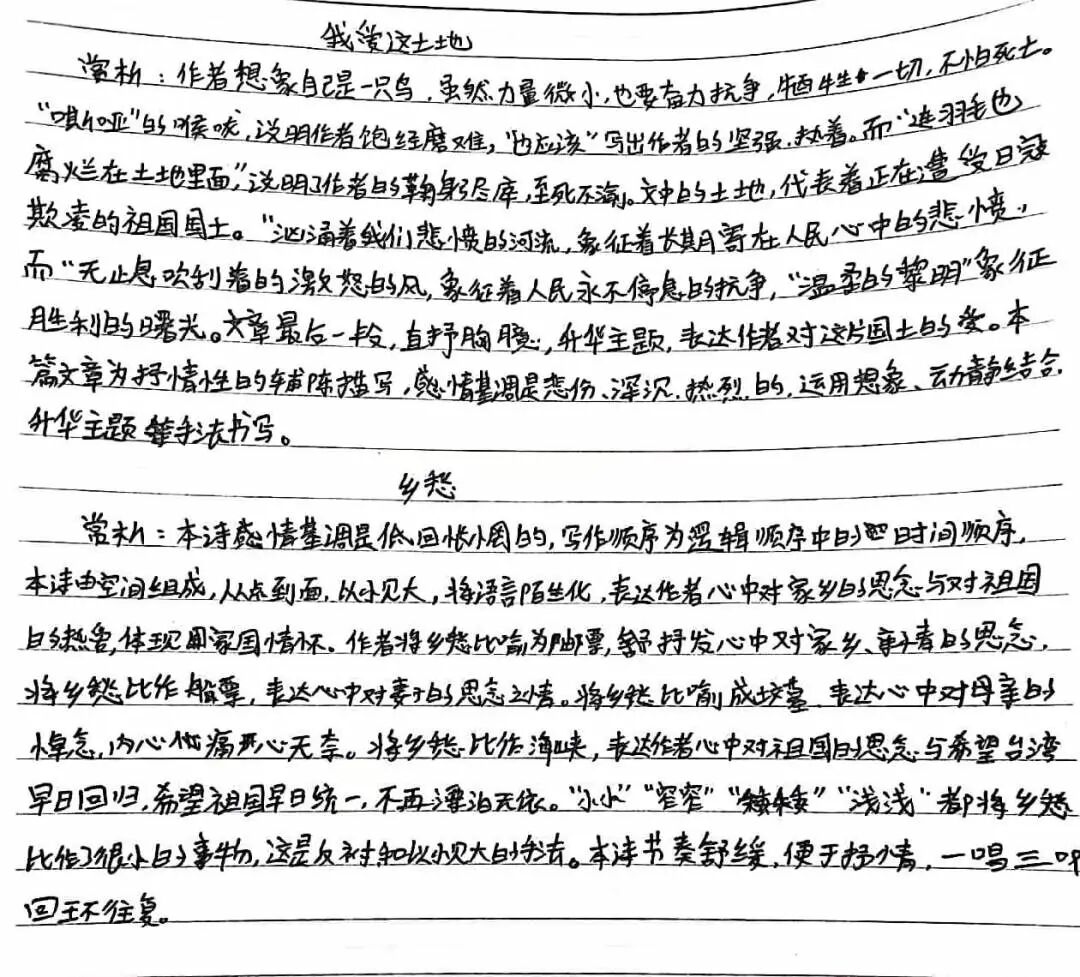 我爱这土地
赏析：作者想象自己是一只鸟，虽然力量微小，也要奋力抗争，牺牲一切，不怕死亡。
“嘶哑”的喉咙，说明作者饱经磨难，“也应该”写出作者的坚强、执着。而“连羽毛也
腐烂在土地里面”，说明了作者的鞠躬尽瘁，至死不渝。文中的土地，代表着正在遭受日寇
欺凌的祖国国土。“汹涌着我们悲愤的河流，象征着长期寄在人民心中的悲愤，
而“无止息吹刮着的激怒的风，象征着人民永不停息的抗争，“温柔的黎明”象征
胜利的曙光。文章最后一段，直抒胸臆，升华主题，表达作者对这片国土的爱。本
篇文章为抒情性的铺陈描写，感情基调是悲伤、深沉、热烈的，运用想象、动静结合、
升华主题等手法书写。
乡愁
赏析：本诗感情基调是低回怅惘的，写作顺序为逻辑顺序中的时间顺序，
本诗由空间组成，从点到面，以小见大，将语言陌生化，表达作者心中对家乡的思念与对祖国
的热爱，体现家国情怀。作者将乡愁比喻为邮票，抒发心中对家乡、亲青的思念，
将乡愁比作船票，表达心中对妻子的思念之情。将乡愁比喻成坟墓，表达心中对母亲的
悼念，内心伤痛无奈。将乡愁比作海峡，表达作者心中对祖国的思念与希望台湾
早日回归，希望祖国早日统一，不再漂泊无依。“小小”“窄窄”“矮矮”“浅浅”都将乡愁
比作了很小的事物，这是反衬和以小见大的手法。本诗节奏舒缓，便于抒情，一唱三叹
回环往复。